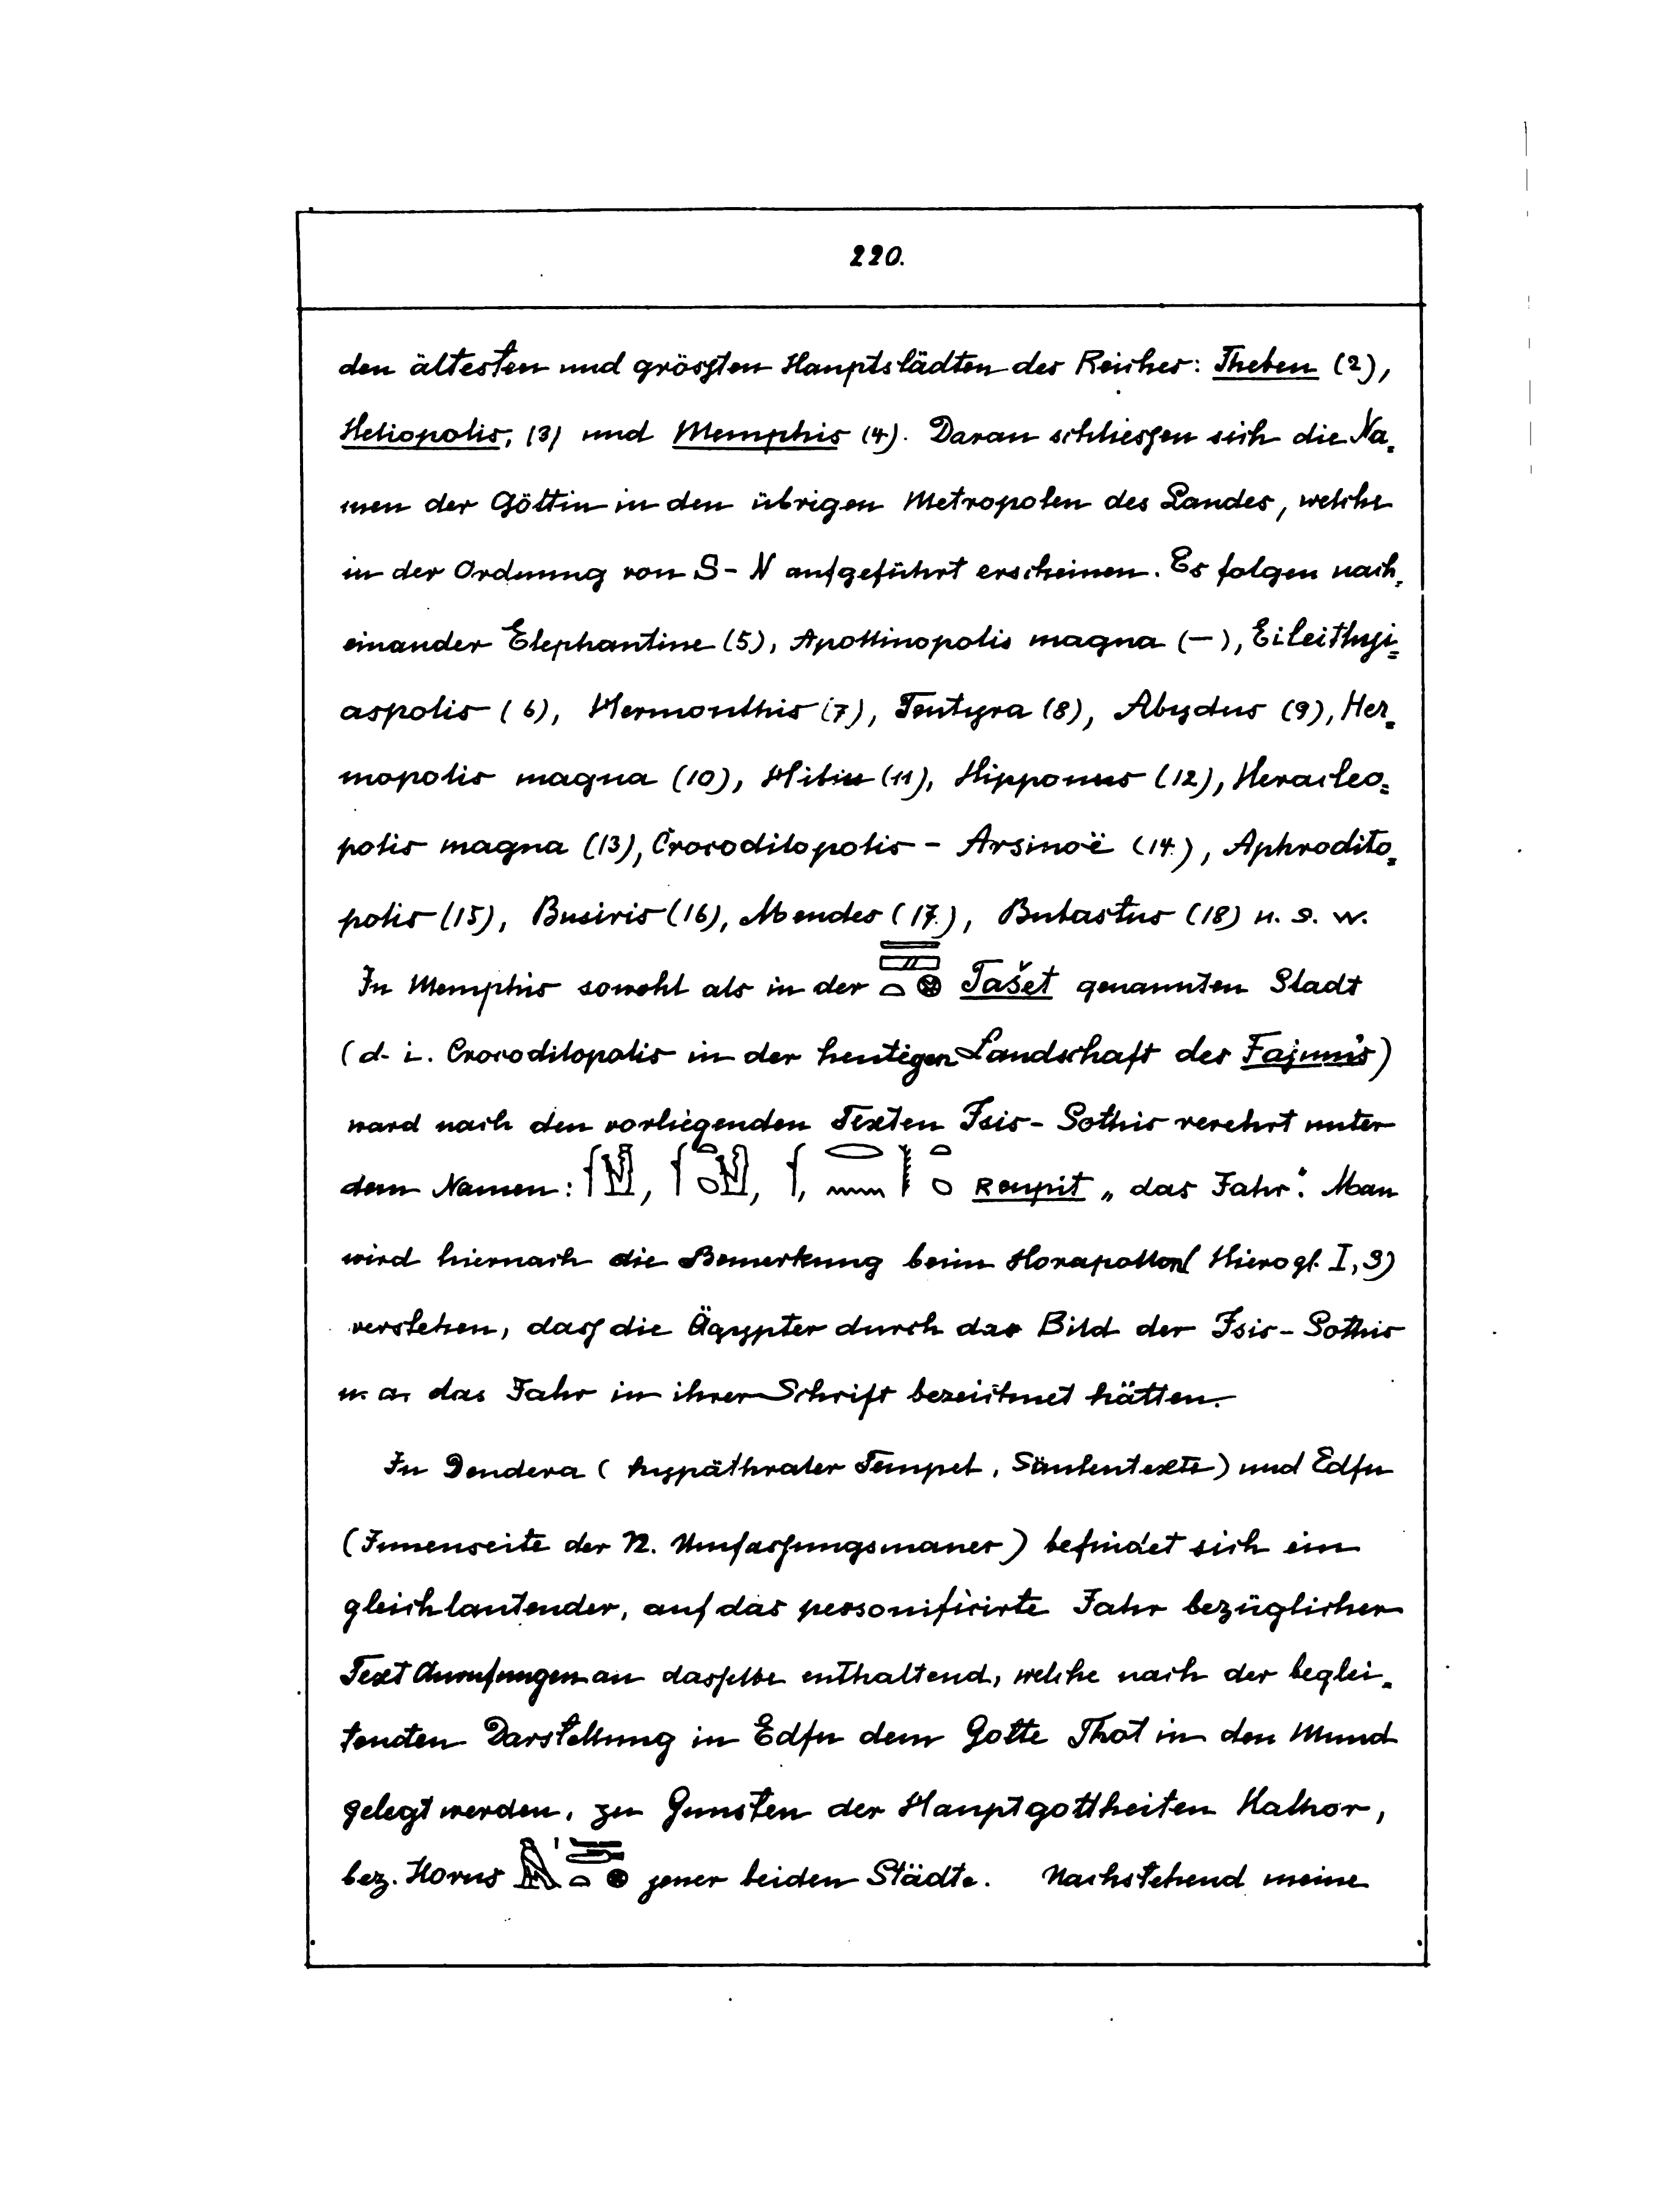 220.
den ältesten und grössten Hauptstädten des Reiches: Theben (2),
Heliopolis, (3) und Memphis (4). Daran schliessen sich die Na-
men der Göttin in den übrigen Metropolen des Landes, welche
in der Ordnung von S-N aufgeführt erscheinen. Es folgen nach-
einander Elephantine (5), Apollinopolis magna (-), Eileithyi-
aspolis (6), Hermonthis (7), Tentyra (8), Abydus (9), Her-
mopolis magna (10), Hibiu (11), Hipponus (12), Heracleo-
polis magna (13), Crocodilopolis - Arsinoë (14), Aphrodito-
polis (15), Busiris (16), Mendes (17), Bubastus (18) u. s. w.
In Memphis sowohl als in der Tašet genannten Stadt
(d. i. Crocodilopolis in der heutigen Landschaft des Fajum's)
ward nach den vorliegenden Texten Isis-Sothis verehrt unter
dem Namen: Renpit „das Jahr". Man
wird hiernach die Bemerkung beim Horapollon (Hierogl. I, 3)
verstehen, dass die Ägypter durch das Bild der Isis-Sothis
u. a. das Jahr in ihrer Schrift bezeichnet hätten.
In Dendera (hypäthraler Tempel, Säulentexte) und Edfu
(Innenseite der N. Umfassungsmauer) befindet sich ein
gleichlautender, auf das personificirte Jahr bezüglicher
Text Anrufungen an dasselbe enthaltend, welche nach der beglei-
tenden Darstellung in Edfu dem Gotte Thot in den Mund
gelegt werden, zu Gunsten der Hauptgottheiten Hathor,
bez. Horus jener beiden Städte. Nachstehend meine